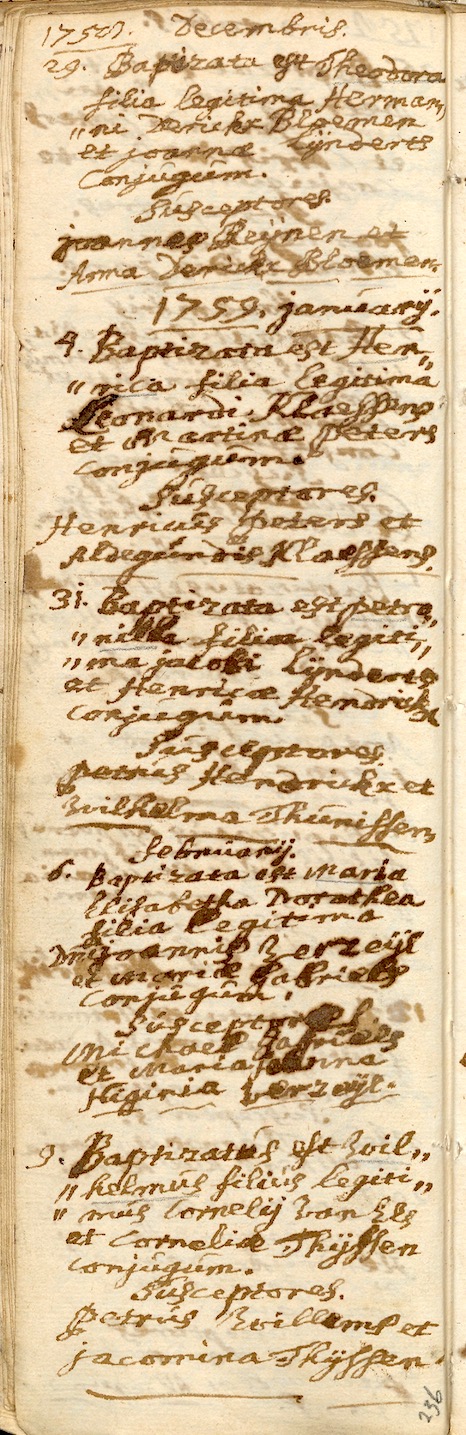 1758. Decembris.
29. Baptizata est Theodora
filia legitima Herman„
„ni Derickx Bloemen
et joannæ Lijnderts
Conjugum.
Susceptores.
joannes Reijnen et
Anna Derickx Bloemen.
1759. januarij.
4. Baptizata est Hen„
„rica filia legitima
Leonardi Klaessens
et Martinæ Peters
conjugum.
Susceptores.
Henricus Peters et
Aldegundis Klaessens.
31. Baptizata est petro„
„nilla filia legiti„
„ma jacobi Lijnderts
et Henricæ Hendrickx
conjugum.
Susceptores.
petrus Hendrickx et
Wilhelma Thunissen
februarij.
6. Baptizata est Maria
Elisabetha Dorothea
filia legitima
Dni joannis Verzeijl
et Mariæ Gabriels
conjugum.
Susceptores
Michael Gabriels
et Maria Joanna
Higinia Verzeijl.
9. Baptizatus est Wil„
„helmus filius legiti„
„mus Cornelij Van Els
et Corneliæ Thijssen
conjugum.
Susceptores.
Petrus Willems et
jacomina Thijssen.
236